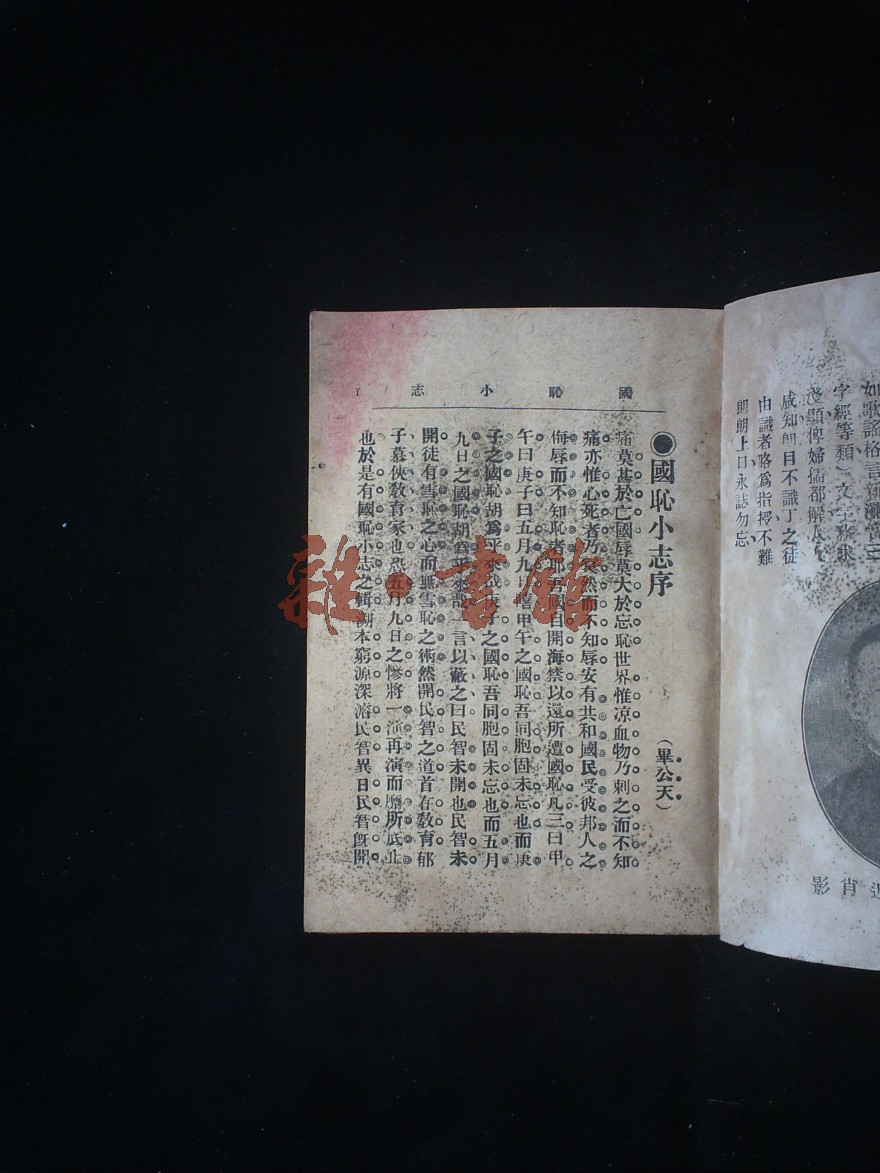 國恥小志
●國恥小志序
(畢公天)
痛莫甚於亡國辱莫大於忘恥世界惟凉血物乃刺之而不知
痛亦惟心死者乃冥然而不知辱安有共和國民受彼邦人之
侮辱而不知恥者耶吾國自開海禁以還所遭國恥凡三曰甲
午曰庚子曰五月九日噫甲午之國恥吾同胞固未忘也而庚
子之國恥胡爲乎來哉庚子之國恥吾同胞固未忘也而五月
九日之國恥胡爲乎來哉一言以蔽之曰民智未開也民智未
開徒有雪恥之心而無雪恥之術然開民智之道首在敎育郁
子慕俠敎育家也恐五月九日之慘將一演再演而靡所底止
也於是有國恥小志之輯溯本窮源深濬民智異日民智旣開
如歌謠格言
字經等類)文字
淺顯俾婦孺都解
咸知卽目不識丁之徒
由識者略爲指授不難
朗朗上口永誌勿忘
肖影
雜·書館